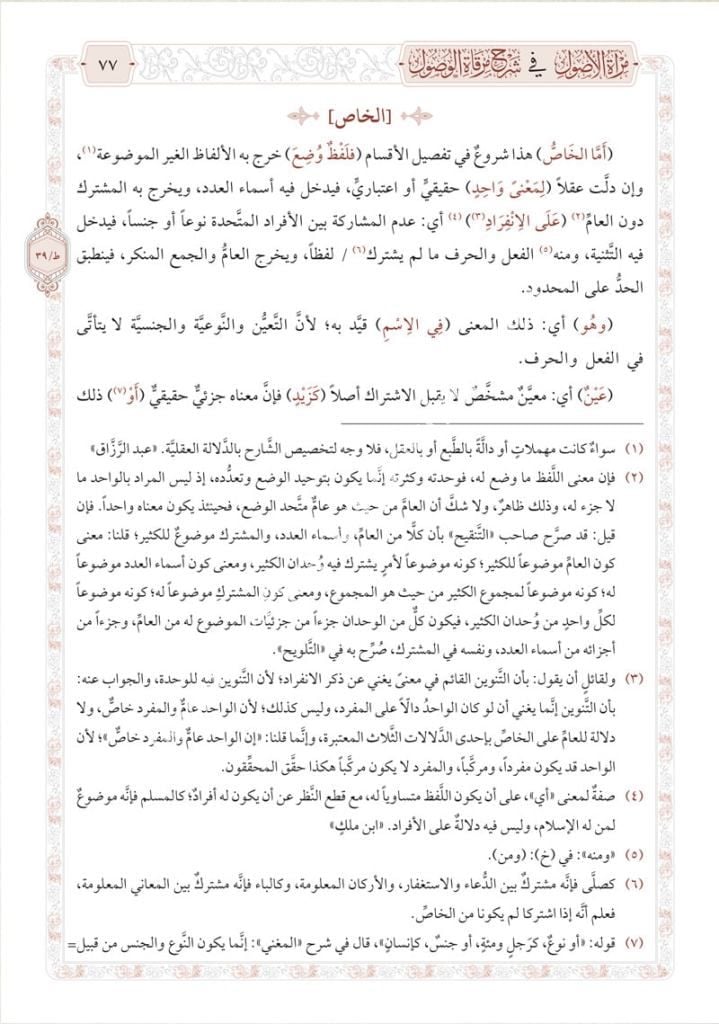 مرآة الأصول في شرح مرقاة الوصول
٧٧
[الخاص]
(أَمَّا الخَاصُّ) هذا شروعٌ في تفصيل الأقسام (فلَفْظٌ وُضِعَ) خرج به الألفاظ الغير الموضوعة(١)،
وإن دلَّت عقلاً (لِمَعْنىً وَاحِدٍ) حقيقيٍّ أو اعتباريٍّ، فيدخل فيه أسماء العدد، ويخرج به المشترك
دون العامِّ(٢) (عَلَى الِانْفِرَادِ(٣)) (٤) أي: عدم المشاركة بين الأفراد المتَّحدة نوعاً أو جنساً، فيدخل
فيه التَّثنية، ومنه(٥) الفعل والحرف ما لم يشترك(٦) / لفظاً، ويخرج العامُّ والجمع المنكر، فينطبق
ظ/٣٩
الحدُّ على المحدود.
(وهُو) أي: ذلك المعنى (فِي الِاسْمِ) قيَّد به؛ لأنَّ التَّعيُّن والنَّوعيَّة والجنسية لا يتأتَّى
في الفعل والحرف.
(عَيْنٌ) أي: معيَّنٌ مشخَّصٌ لا يقبل الاشتراك أصلاً (كَزَيْدٍ) فإنَّ معناه جزئيٌّ حقيقيٌّ (أَوْ(٧)) ذلك
(١) سواءٌ كانت مهملاتٍ أو دالَّةً بالطَّبع أو بالعقل، فلا وجه لتخصيص الشَّارح بالدَّلالة العقليَّة. «عبد الرَّزَّاق»
(٢) فإن معنى اللَّفظ ما وضع له، فوحدته وكثرته إنَّما يكون بتوحيد الوضع وتعدُّده، إذ ليس المراد بالواحد ما
لا جزء له، وذلك ظاهرٌ، ولا شكَّ أن العامَّ من حيث هو عامٌّ متَّحد الوضع، فحينئذ يكون معناه واحداً. فإن
قيل: قد صرَّح صاحب «التَّنقيح» بأن كلًّا من العامِّ، وأسماء العدد، والمشترك موضوعٌ للكثير؛ قلنا: معنى
كون العامِّ موضوعاً للكثير؛ كونه موضوعاً لأمرٍ يشترك فيه وُحدان الكثير، ومعنى كون أسماء العدد موضوعاً
له؛ كونه موضوعاً لمجموع الكثير من حيث هو المجموع، ومعنى كون المشتركِ موضوعاً له؛ كونه موضوعاً
لكلِّ واحدٍ من وُحدان الكثير، فيكون كلٌّ من الوحدان جزءاً من جزئيَّات الموضوع له من العامِّ، وجزءاً من
أجزائه من أسماء العدد، ونفسه في المشترك، صُرِّح به في «التَّلويح».
(٣) ولقائلٍ أن يقول: بأن التَّنوين القائم في معنىً يغني عن ذكر الانفراد؛ لأن التَّنوين فيه للوحدة، والجواب عنه:
بأن التَّنوين إنَّما يغني أن لو كان الواحدُ دالًّا على المفرد، وليس كذلك؛ لأن الواحد عامٌّ والمفرد خاصٌّ، ولا
دلالة للعامِّ على الخاصِّ بإحدى الدَّلالات الثَّلاث المعتبرة، وإنَّما قلنا: «إن الواحد عامٌّ والمفرد خاصٌّ»؛ لأن
الواحد قد يكون مفرداً، ومركَّباً، والمفرد لا يكون مركَّباً هكذا حقَّق المحقِّقون.
(٤) صفةٌ لمعنى «أي»، على أن يكون اللَّفظ متساوياً له، مع قطع النَّظر عن أن يكون له أفرادٌ؛ كالمسلم فإنَّه موضوعٌ
لمن له الإسلام، وليس فيه دلالةٌ على الأفراد. «ابن ملكٍ»
(٥) «ومنه»: في (خ): (ومن).
(٦) كصلَّى فإنَّه مشتركٌ بين الدُّعاء والاستغفار، والأركان المعلومة، وكالباء فإنَّه مشتركٌ بين المعاني المعلومة،
فعلم أنَّه إذا اشتركا لم يكونا من الخاصِّ.
(٧) قوله: «أو نوعٌ، كرَجلٍ ومئةٍ، أو جنسٌ، كإنسانٍ»، قال في شرح «المغني»: إنَّما يكون النَّوع والجنس من قبيل=